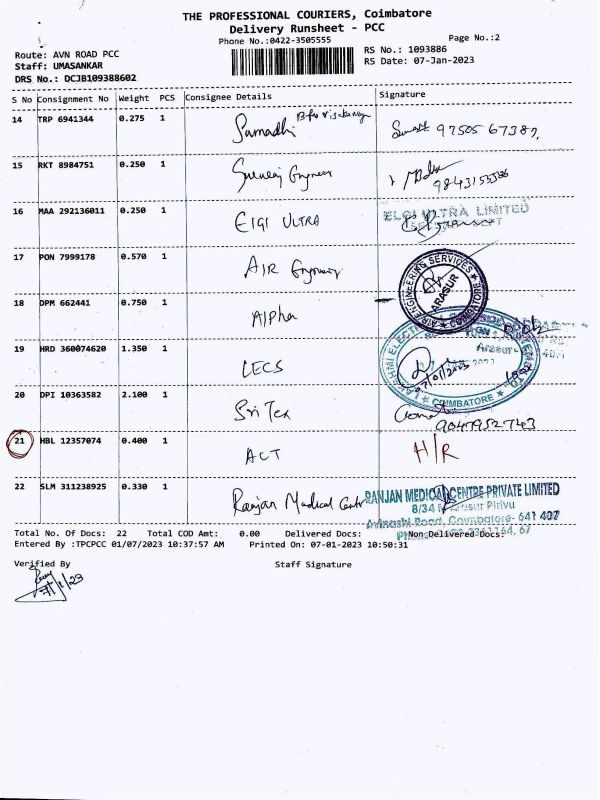 THE PROFESSIONAL COURIERS, Coimbatore
Delivery Runsheet - PCC
Phone No.:0422-3505555
Page No.:2
Route: AVN ROAD PCC
RS No.: 1093886
Staff: UMASANKAR
RS Date: 07-Jan-2023
DRS No.: DCJB109388602
S No Consignment No Weight PCS Consignee Details Signature
14 TRP 6941344 0.275 1 Samadhi 97505 67387
15 RKT 8984751 0.250 1 Engineer
16 MAA 292136011 0.250 1 ElGI ULTRA ELGI ULTRA LIMITED
17 PON 7999178 0.570 1 AIR AIR ENGINEERING SERVICES ARASUR COIMBATORE
18 DPM 662441 0.750 1 Alpha
19 HRD 360074620 1.350 1 LECS 07/01/2023 COIMBATORE
20 DPI 10363582 2.100 1 Sri Tex
21 HBL 12357074 0.400 1 ACT H/R
22 SLM 311238925 0.330 1 Ranjan Medical Centr RANJAN MEDICAL CENTRE PRIVATE LIMITED
8/34 Pirivu
Avinashi Road, Coimbatore- 641 407
Total No. Of Docs: 22 Total COD Amt: 0.00 Delivered Docs: Non Delivered Docs:
Entered By :TPCPCC 01/07/2023 10:37:57 AM Printed On: 07-01-2023 10:50:31
Verified By Staff Signature
7/1/23